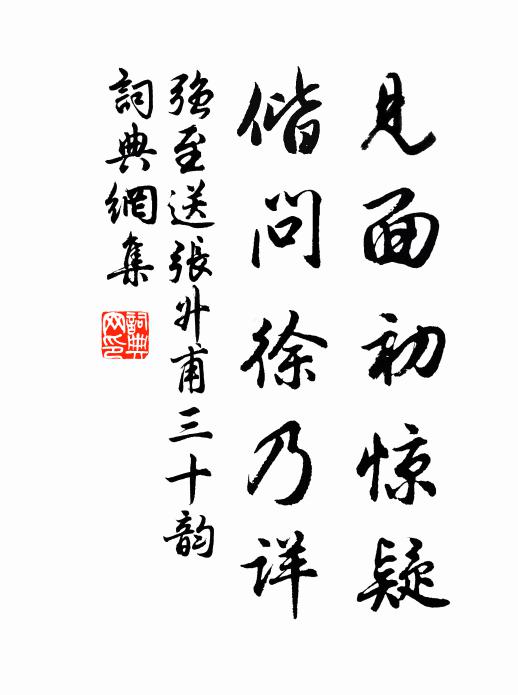 見面初惊疑
偕问徐乃详
強至送張升甫三十韵
詞典網集
詞典网印